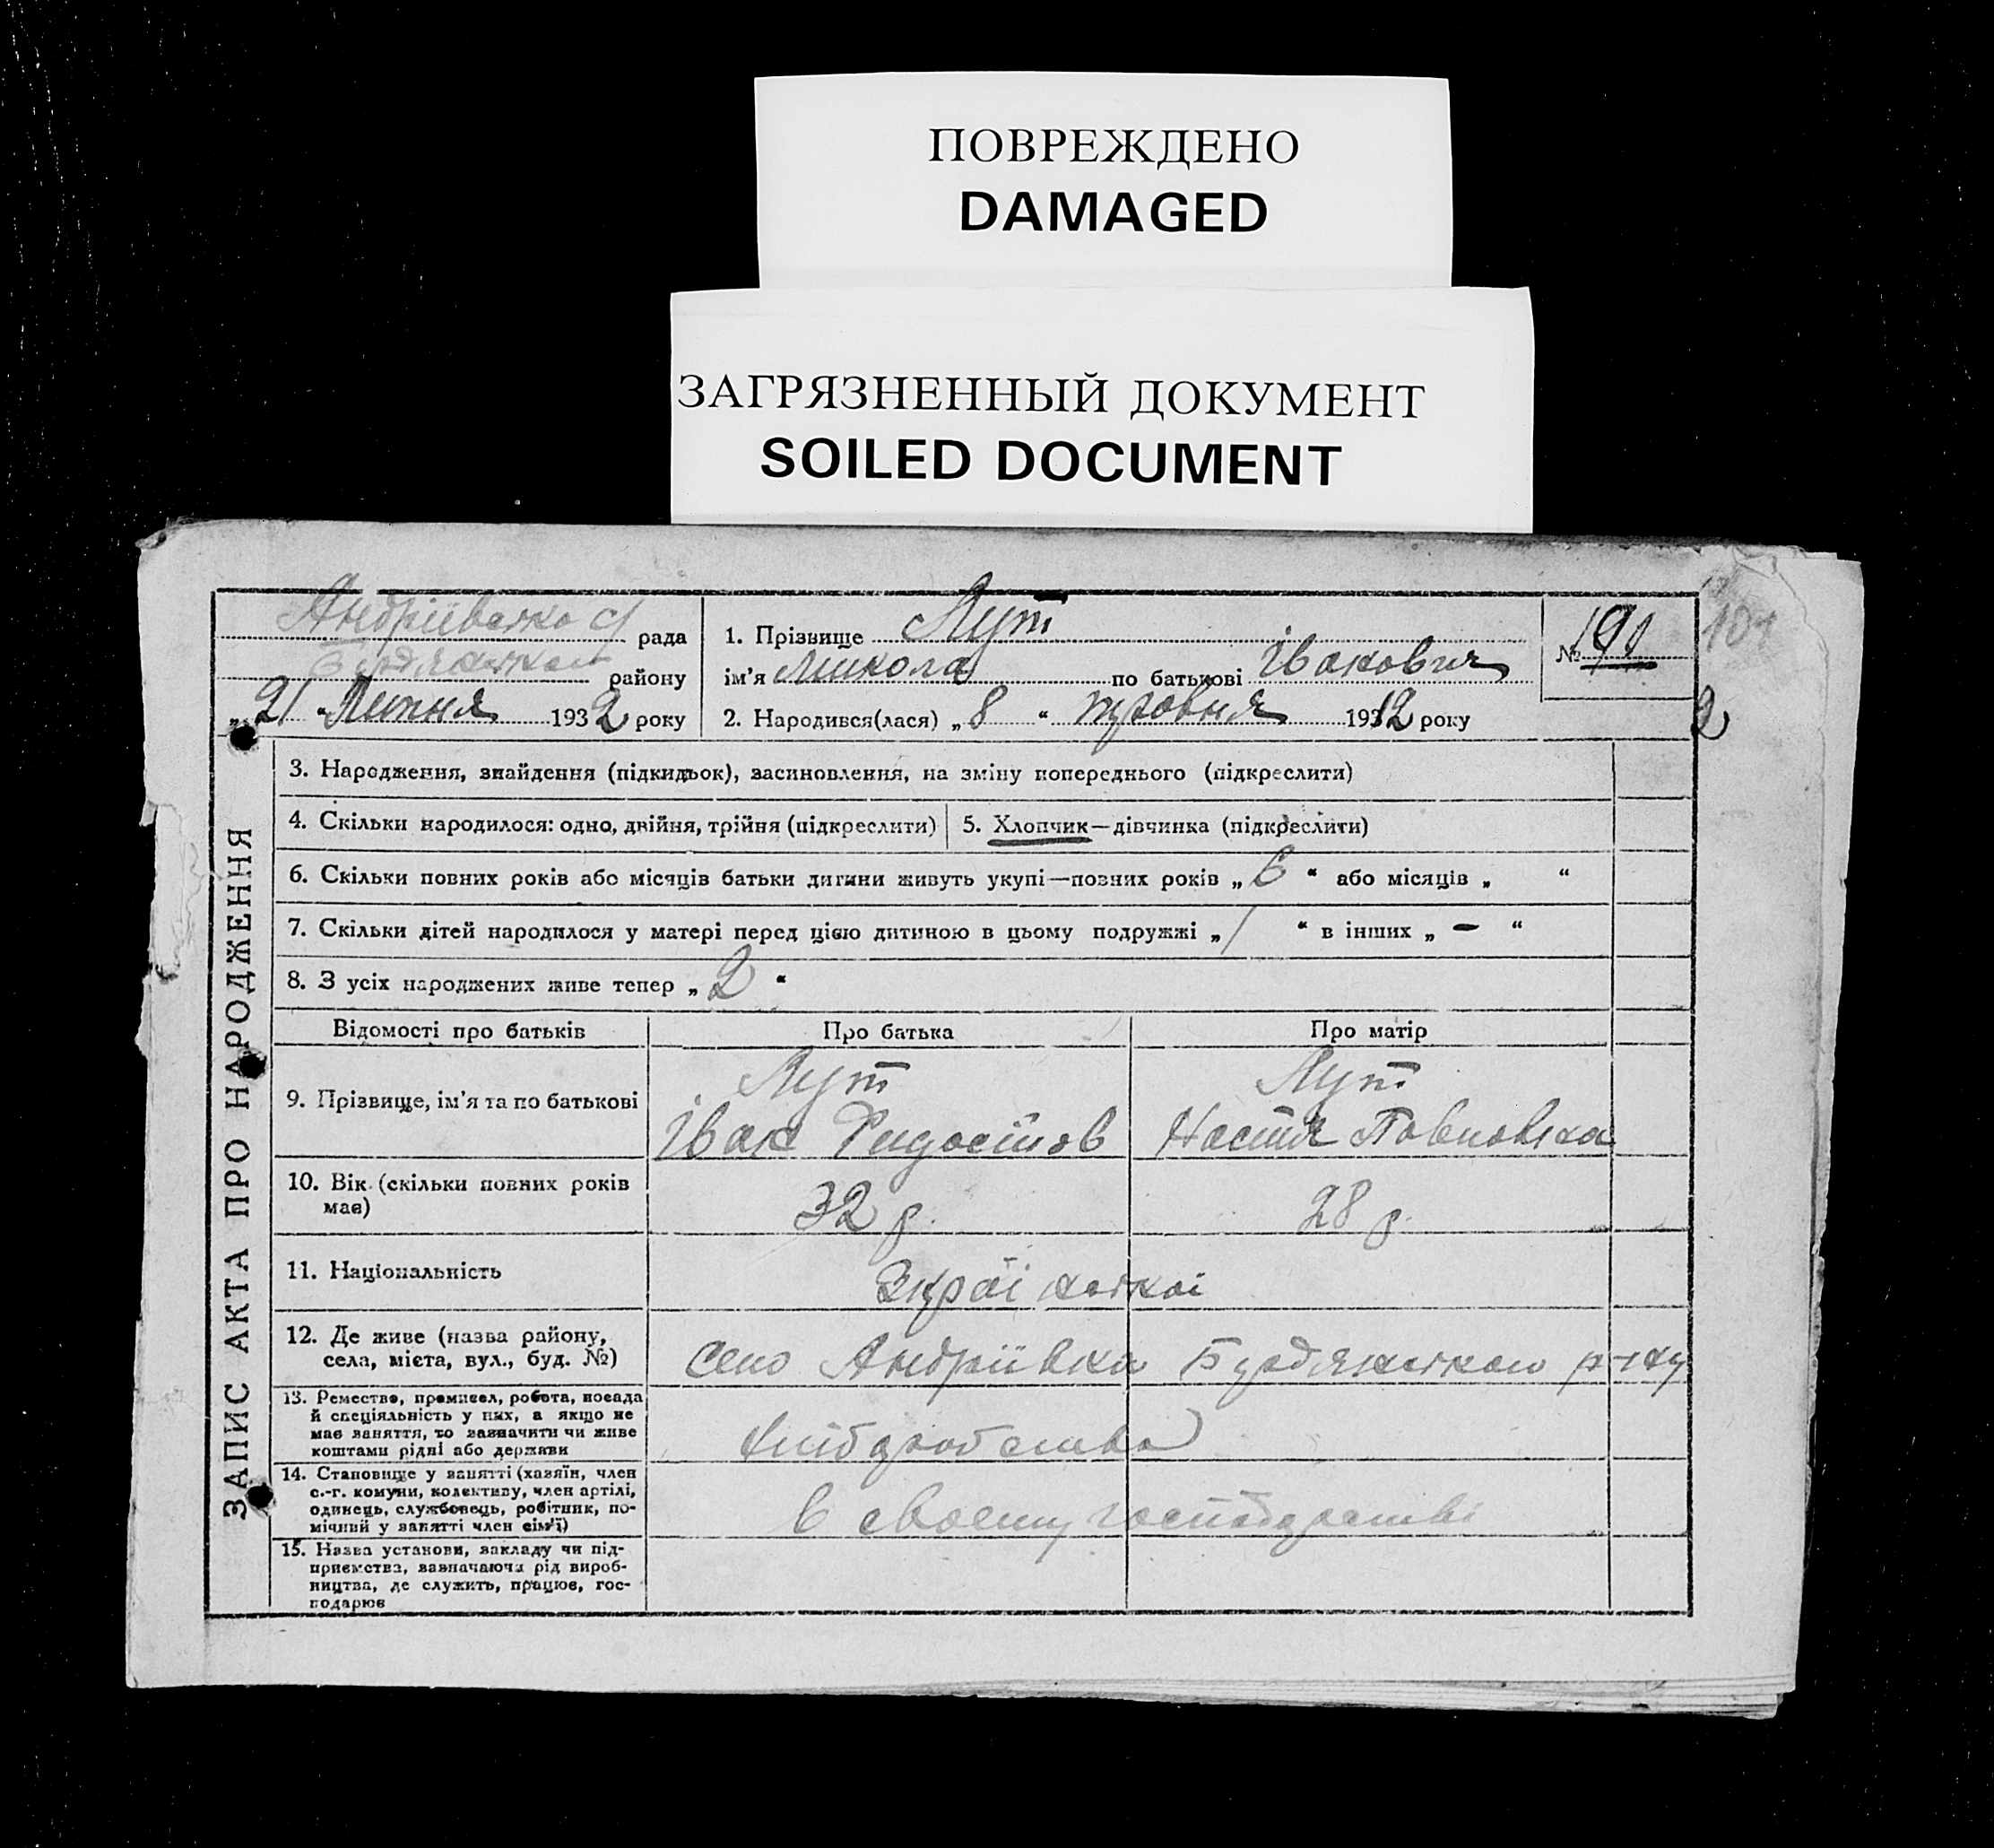 ПОВРЕЖДЕНО
DAMAGED
ЗАГРЯЗНЕННЫЙ ДОКУМЕНТ
SOILED DOCUMENT
рада
району
„21“ Липня 1932 року
1. Прізвище Лут
ім'я Микола по батькові Іванович
2. Народився(лася) „8“ 1932 року
№ 191
ЗАПИС АКТА ПРО НАРОДЖЕННЯ
3. Народження, знайдення (підкидьок), засиновлення, на зміну попереднього (підкреслити)
4. Скільки народилося: одно, двійня, трійня (підкреслити)
5. Хлопчик—дівчинка (підкреслити)
6. Скільки повних років або місяців батьки дитини живуть укупі—повних років „6“ або місяців „ “
7. Скільки дітей народилося у матері перед цією дитиною в цьому подружжі „1“ в інших „—“
8. З усіх народжених живе тепер „2“
Відомості про батьків
Про батька
Про матір
9. Прізвище, ім'я та по батькові
Лут
Іван
Лут
Настя Павловна
10. Вік (скільки повних років
має)
32 р.
28 р.
11. Національність
12. Де живе (назва району,
села, міста, вул., буд. №)
село Андріївка р-ну
13. Ремество, промисел, робота, посада
й спеціяльність у них, а якщо не
має заняття, то зазначити чи живе
коштами рідні або держави
хліборобства
14. Становище у занятті (хазяїн, член
с.-г. комуни, колективу, член артілі,
одинець, службовець, робітник, по-
мічний у занятті член сім'ї)
в своему господарстві
15. Назва установи, закладу чи під-
приємства, зазначаючи рід вироб-
ництва, де служить, працює, гос-
подарює